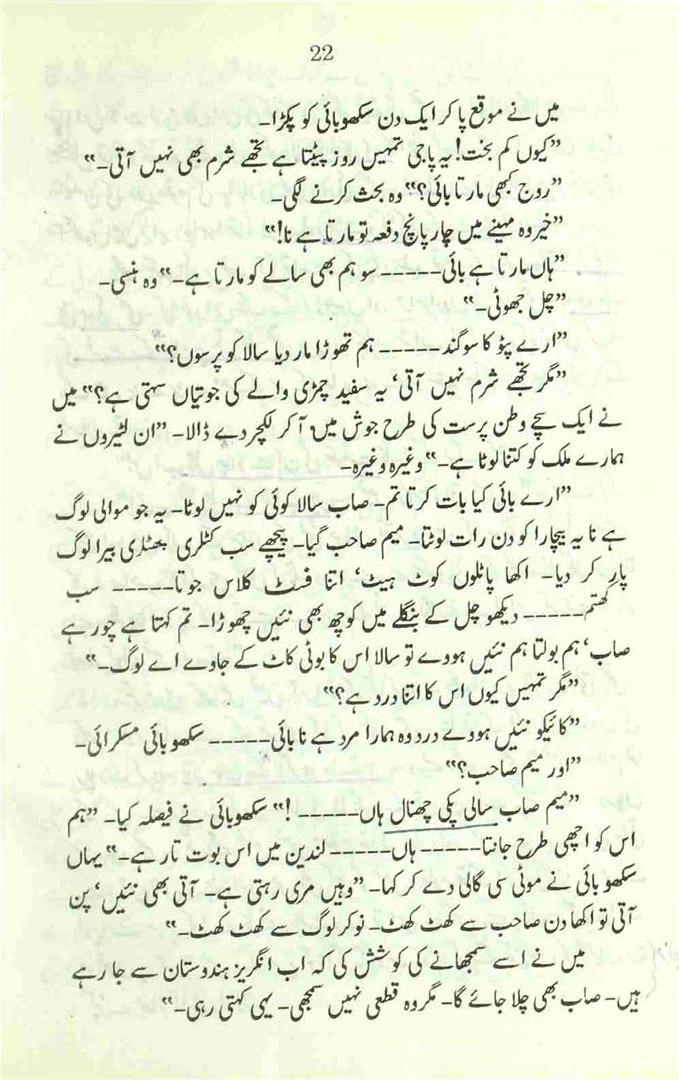 22
میں نے موقع پا کر ایک دن سکھوبائی کو پکڑا۔
”کیوں کم بخت! یہ پاجی تمہیں روز پیٹتا ہے تجھے شرم بھی نہیں آتی۔“
”روج کبھی مارتا بائی؟“ وہ بحث کرنے لگی۔
”خیر وہ مہینے میں چار پانچ دفعہ تو مارتا ہے نا!“
”ہاں مارتا ہے بائی----- سو ہم بھی سالے کو مارتا ہے۔“ وہ ہنسی۔
”چل جھوٹی۔“
”ارے پٹو کا سوگند----- ہم تھوڑا مار دیا سالا کو پرسوں؟“
”مگر تجھے شرم نہیں آتی‘ یہ سفید چمڑی والے کی جوتیاں سہتی ہے؟“ میں
نے ایک سچے وطن پرست کی طرح جوش میں آ کر لکچر دے ڈالا۔ ”ان لٹیروں نے
ہمارے ملک کو کتنا لوٹا ہے۔“ وغیرہ وغیرہ۔
”ارے بائی کیا بات کرتا تم۔ صاب سالا کوئی کو نہیں لوٹا۔ یہ جو موالی لوگ
ہے نا یہ بیچارا کو دن رات لوٹتا۔ میم صاحب گیا۔ پیچھے سب کٹلری بھٹلری بیرا لوگ
پار کر دیا۔ اکھا پاٹلوں کوٹ ہیٹ‘ اتنا فسٹ کلاس جوتا----- سب
کھتم----- دیکھو چل کے بنگلے میں کوچھ بھی نئیں چھوڑا۔ تم کہتا ہے چور ہے
صاب‘ ہم بولتا ہم نئیں ہووے تو سالا اس کا بوٹی کاٹ کے جاوے اے لوگ۔“
”مگر تمہیں کیوں اس کا اتنا درد ہے؟“
”کائیکو نئیں ہووے درد وہ ہمارا مرد ہے نا بائی----- سکھو بائی مسکرائی۔
”اور میم صاحب؟“
”میم صاب سالی پکی چھنال ہاں----- !“ سکھوبائی نے فیصلہ کیا۔ ”ہم
اس کو اچھی طرح جانتا----- ہاں----- لندین میں اس بوت تار ہے۔“ یہاں
سکھو بائی نے موٹی سی گالی دے کر کہا۔ ”وہیں مری رہتی ہے۔ آتی بھی نئیں‘ پن
آتی تو اکھا دن صاحب سے کھٹ کھٹ۔ نوکر لوگ سے کھٹ کھٹ۔“
میں نے اسے سمجھانے کی کوشش کی کہ اب انگریز ہندوستان سے جا رہے
ہیں۔ صاب بھی چلا جائے گا۔ مگر وہ قطعی نہیں سمجھی۔ یہی کہتی رہی۔“